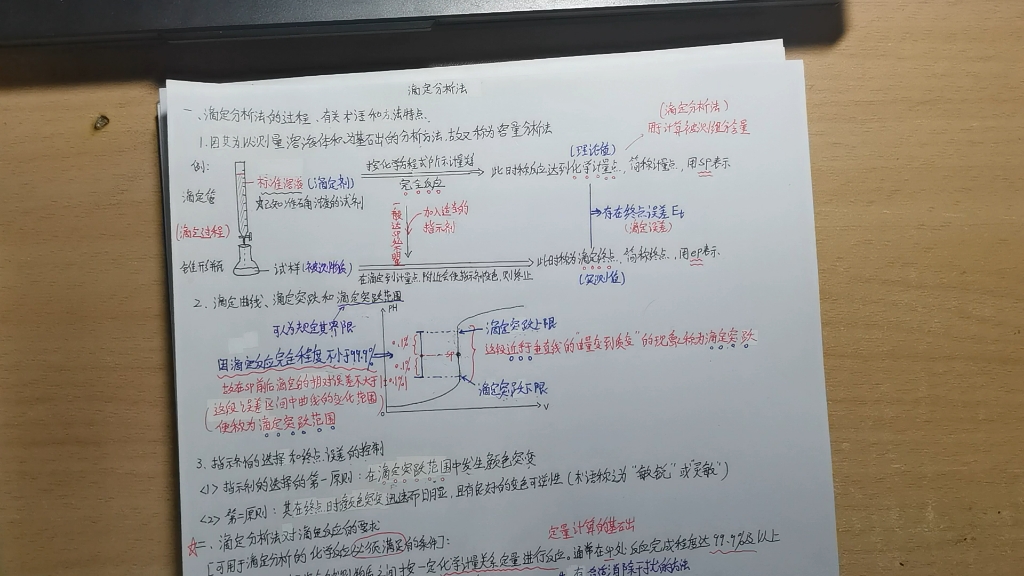 滴定分析法
一、滴定分析法的过程、有关术语和方法特点.
1.因其为以测量溶液体积为基础的分析方法,故又称为容量分析法
(滴定分析法)
用于计算被测组分含量
例:
滴定管
(滴定过程)
锥形瓶
标准溶液(滴定剂)
其已知准确浓度的试剂
试样(被测物质)
按化学方程式所示计量关系
完全反应
一般这步处不明显
加入适当的
指示剂
在滴定到计量点附近会使指示剂变色,则终止
(理论值)
此时称反应达到化学计量点,简称计量点,用sp表示
存在终点误差Et
(滴定误差)
此时称为滴定终点,简称终点,用ep表示
(实测值)
2.滴定曲线、滴定突跃和滴定突跃范围
可人为规定其界限
因滴定反应完全程度不小于99.9%
故在sp前后滴定的相对误差不大于|±0.1%|
(这段误差区间中曲线的变化范围
便称为滴定突跃范围
PH
0.1%
0.1%
sp
V
滴定突跃上限
这段近乎垂直线的"由量变到质变"的现象称为滴定突跃
滴定突跃下限
3.指示剂的选择和终点误差的控制
<1>指示剂的选择的第一原则:在滴定突跃范围中发生颜色突变
<2>第二原则:其在终点时颜色突变迅速而明显,且有良好的变色可逆性(术语称之为"敏锐"或"灵敏")
☆二、滴定分析法对滴定反应的要求
[可用于滴定分析的化学反应必须满足的条件]:
定量计算的基础
之间按一定化学计量关系定量进行反应。通常在sp处反应完成程度达99.9%及以上
消除干扰的方法